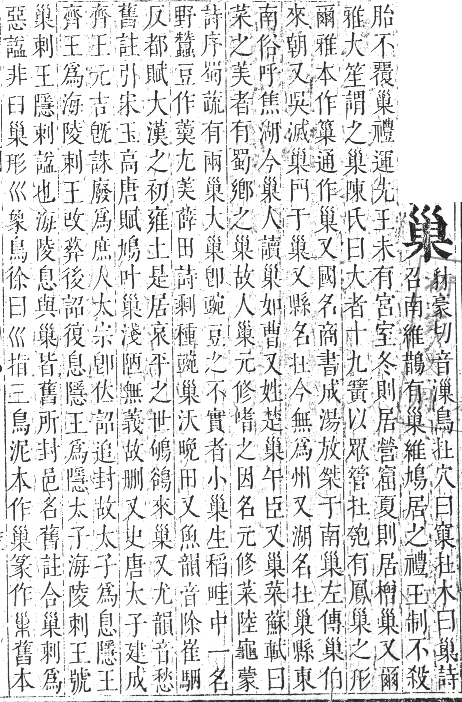 巢
鉏豪切音漅鳥在穴曰窠在木曰巢詩
召南維鵲有巢維鳩居之禮王制不殺
胎不覆巢禮運先王未有宮室冬則居營窟夏則居橧巢又爾
雅大笙謂之巢陳氏曰大者十九簧以眾管在匏有鳳巢之形
爾雅本作䉥通作巢又國名商書成湯放桀于南巢左傳巢伯
來朝又吳滅巢門于巢又縣名在今無為州又湖名在巢縣東
南俗呼焦湖今巢人讀巢如曹又姓楚巢午臣又巢菜蘇軾曰
菜之美者有蜀鄉之巢故人巢元修嗜之因名元修菜陸龜蒙
詩序蜀蔬有兩巢大巢卽豌豆之不實者小巢生稻畦中一名
野蠶豆作羹尤美薛田詩剩種豌巢沃晩田又魚韻音除崔駰
反都賦大漢之初雍土是居哀平之世鴝鵒來巢又尤韻音愁
舊註引宋玉高唐賦鳩叶巢淺陋無義故刪又史唐太子建成
齊王元吉旣誅廢為庶人太宗卽位詔追封故太子為息隱王
齊王為海陵剌王改葬後詔復息隱王為隱太子海陵剌王號
巢剌王隱剌諡也海陵息與巢皆舊所封邑名舊註合巢剌為
惡諡非曰巢形巛象鳥徐曰巛指三鳥泥本作巢篆作巢舊本